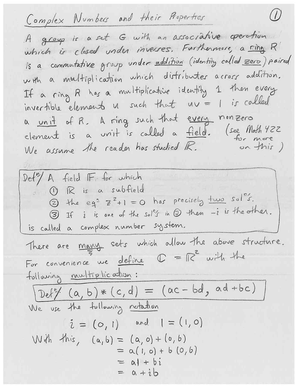 Complex Numbers and their Properties ①
A group is a set G with an associative operation
which is closed under inverses. Furthermore, a ring R
is a commutative group under addition (identity called zero) paired
with a multiplication which distributes across addition.
If a ring R has a multiplicative identity 1 then every
invertible elements u such that uv = 1 is called
a unit of R. A ring such that every nonzero
element is a unit is called a field. (see Math 422
We assume the reader has studied ℝ. for more
on this)
Defⁿ/ A field F for which
① ℝ is a subfield
② the eqⁿ z²+1=0 has precisely two solⁿs.
③ If i is one of the solⁿs in ② then -i is the other.
is called a complex number system.
There are many sets which allow the above structure.
For convenience we define ℂ = ℝ² with the
following multiplication:
Defⁿ/ (a,b)*(c,d) = (ac-bd, ad+bc)
We use the following notation
i = (0,1) and 1 = (1,0)
With this, (a,b) = (a,0) + (0,b)
= a(1,0) + b(0,1)
= a1 + bi
= a + ib